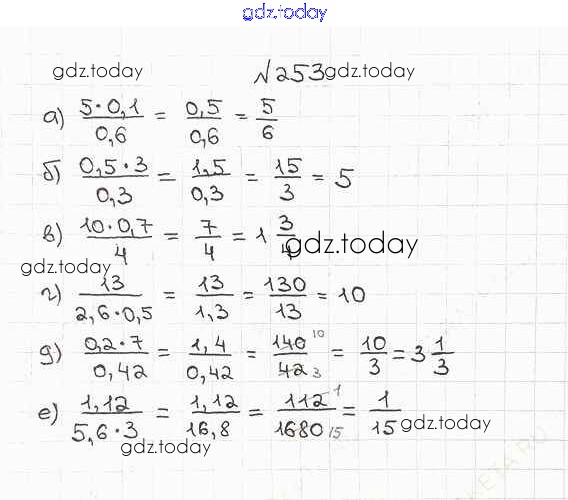 gdz.today
gdz.today №253 gdz.today
а) 5·0,1/0,6 = 0,5/0,6 = 5/6
б) 0,5·3/0,3 = 1,5/0,3 = 15/3 = 5
в) 10·0,7/4 = 7/4 = 1 3/4
gdz.today
gdz.today
г) 13/2,6·0,5 = 13/1,3 = 130/13 = 10
д) 0,2·7/0,42 = 1,4/0,42 = 140 10/42 3 = 10/3 = 3 1/3
е) 1,12/5,6·3 = 1,12/16,8 = 112 1/1680 15 = 1/15
gdz.today
gdz.today